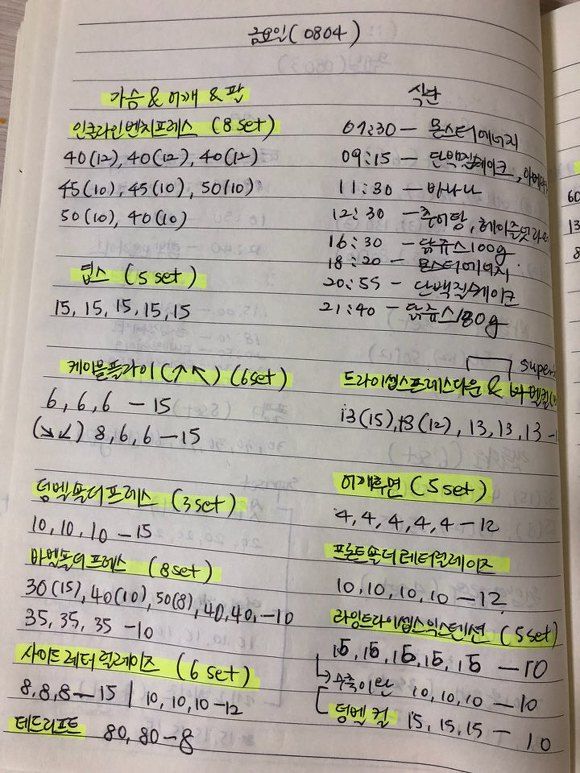 금요일(0804)
가슴 & 어깨 & 팔
인클라인벤치프레스 (8set)
40(12), 40(12), 40(12)
45(10), 45(10), 50(10)
50(10), 40(10)
딥스 (5set)
15, 15, 15, 15, 15
케이블플라이(↑↖) (6set)
6, 6, 6 - 15
(↘↙) 8, 6, 6 - 15
덤벨숄더프레스 (3set)
10, 10, 10 - 15
바벨숄더프레스 (8set)
30(15), 40(10), 50(8), 40, 40, -10
35, 35, 35 -10
사이드레터럴레이즈 (6set)
8, 8, 8 - 15 / 10, 10, 10 - 12
데드리프트 80, 80 - 8
식단
07:30 - 몬스터에너지
09:15 - 단백질쉐이크,
11:30 - 바나나
12:30 - 추어탕,
16:30 - 닭쥬스100g
18:20 - 몬스터에너지
20:55 - 단백질쉐이크
21:40 - 닭쥬스180g
super
트라이셉스프레스다운 &
13(15), 13(12), 13, 13, 13 -
어깨후면 (5set)
4, 4, 4, 4, 4 - 12
프론트숄더레터럴레이즈
10, 10, 10, 10 - 12
라잉트라이셉스익스텐션 (5set)
15, 15, 15, 15, 15 - 10
10, 10, 10 - 10
덤벨컬 15, 15, 15 - 10